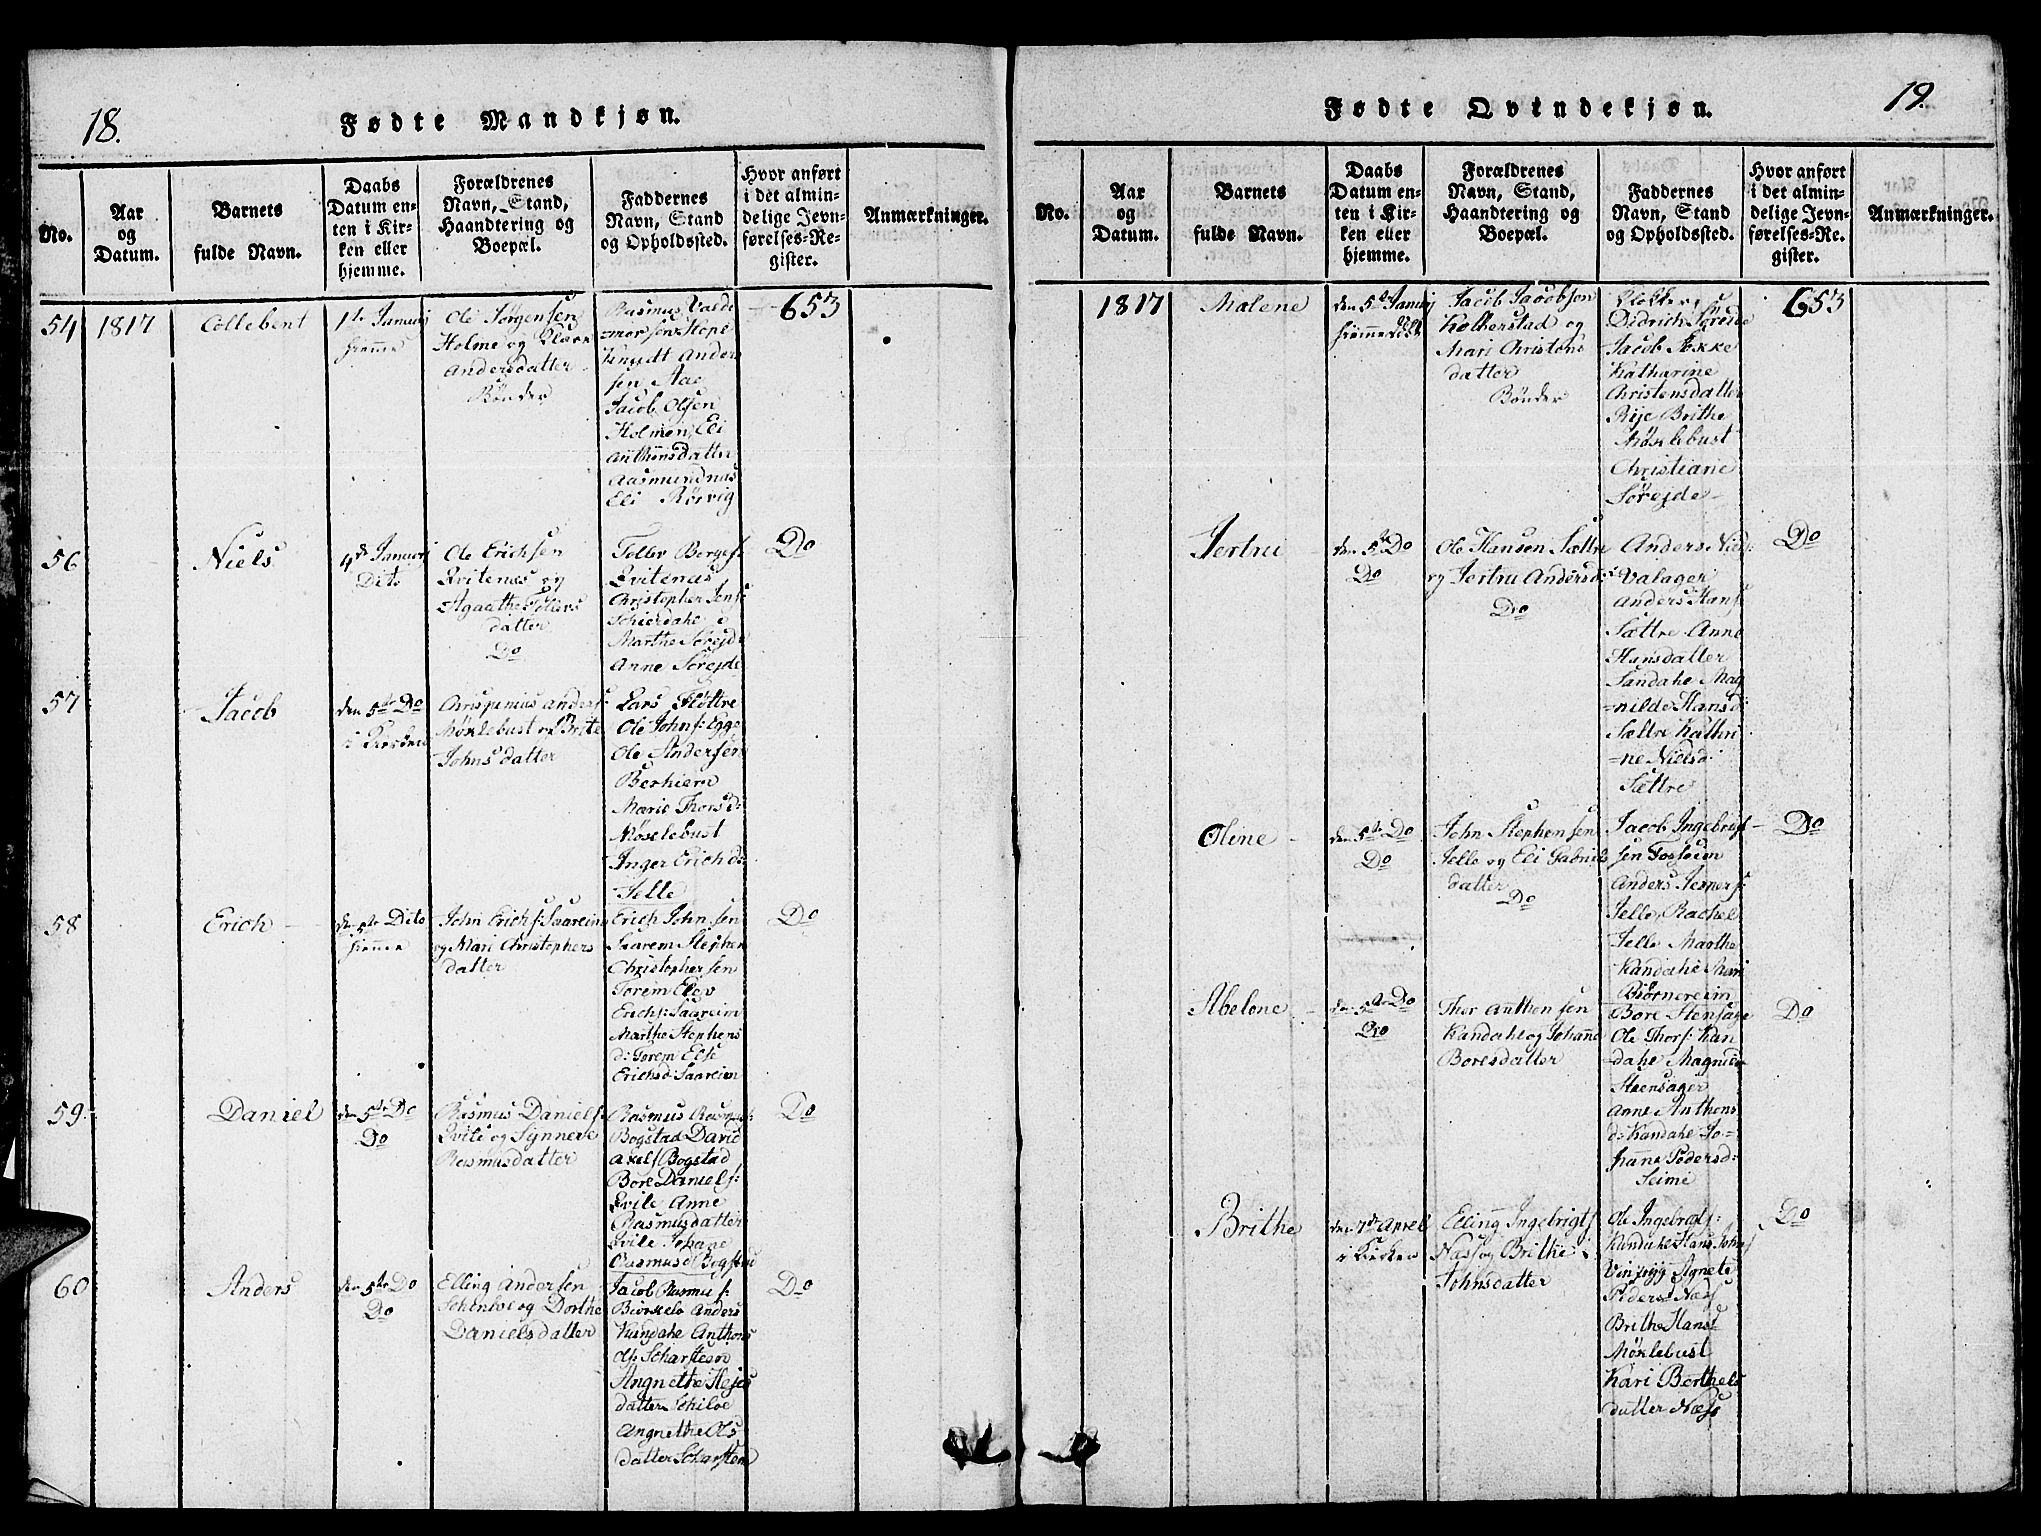 18.
Fødte Mandkjøn.
No.
Aar
og
Datum.
Barnets
fulde Navn.
Daabs
Datum en-
ten i Kir-
ken eller
hjemme.
Forældrenes
Navn, Stand,
Haandtering og
Boepæl.
Faddernes
Navn, Stand
og Opholdssted.
Hvor anført
i det almin-
delige Jevn-
førelses-Re-
gister.
Anmærkninger.
54
1817
Collebent
1te Januarj
hiemme
Ole Jørgensen
Holme og
Andersdatter
Bønder
Rasmus Valde
=morsen Hope
Knudt Ander
sen Aae
Jacob Olsen
Holmen, Eli
Anthonsdatter
Aasmundnæs
Eli Rørvig
653
56
Niels
4de Januarj
Dito
Ole Erichsen
Qvitenæs og
Agaathe Tollers
datter
Do
Toller Borges:
Qvitenæs
Christopher Jens:
Schierdahl
Marthe Sørejde
Anne Sørejde
Do
57
Jacob
den 5te Do
i Kirken
Chrispinius Anders:
Møklebust og Brite
Johnsdatter
Lars Fløttre
Ole Johns: Egge
Ole Andersen
Berhiem
Marie Thorsd:
Møklebust
Inger Erichd:
Jelle
58
Erich
den 5te Dito
hiemme
John Erichs: Saareim
og Mari Christophers
datter
Erich Johnsen
Saarem Stephen
Christophersen
Torem Elev
Erichs: Saareim
Marthe Stephens
d: Torem Else
Erichsd: Saareim
Do
59
Daniel
den 5te Do
Do
Rasmus Daniels:
Qvile og Synneve
Rasmusdatter
Rasmus Rasmus:
Bogstad David
Axels: Bogstad
Bore Daniels:
Qvile Anne
Rasmusdatter
Qvile Johane
Rasmusd Bogstad
Do
60
Anders
den 5te Do
Do
Elling Andersen
og Dorthe
Danielsdatter
Jacob Rasmus:
Biørkelo Anders
Kandahl Anthons
Ols: Scharsteen
Angnethe
datter
Angnethe Ols
datter Scharsten
Do
19.
Fødte Qvindekjøn.
No.
Aar
og
Datum.
Barnets
fulde Navn.
Daabs
Datum en-
ten i Kir-
ken eller
hjemme.
Forældrenes
Navn, Stand,
Haandtering og
Boepæl.
Faddernes
Navn, Stand
og Opholdssted.
Hvor anført
i det almin-
delige Jevn-
førelses-Re-
gister.
Anmærkninger.
1817
Malene
den 5te Januarj
Jacob Jacobsen
Kolberstad og
Mari Christens
datter
Bønder
Klokker
Didrich Sørejde
Jacob Løkke
Katharine
Christensdatter
Rije Brithe
Møklebust
Christiane
Sørejde
653
Jertru
den 5te Do
Do
Ole Hansen Sættre
og Jertru Andersd:
Do
Anders Niels:
Valager
Anders Hans:
Sættre Anne
Hansdatter
Sandahl Mag
=nilde Hansd:
Sættre Kathri
=ne Nielsd:
Sættre
Do
Oline
den 5te Do
Do
John Stephensen
Jelle og Eli Gabriels
datter
Do
Jacob Ingebrigt
sen Fosheim
Anders Iverss:
Jelle, Rachel
Jelle Marthe
Kandahl Mari
Biørnereim
Do
Abelone
den 5te Do
Do
Thor Anthonsen
Kandahl og Johanne
Boresdatter
Bore Stensager
Ole Thors: Kan
dahl Magnild
Steensager
Anne Anthons
d: Kandahl Jo=
hanne Pedersd:
Seime
Do
Brithe
den 7de Aprel
i Kirken
Elling Ingebrigts:
Næss og Brithe
Johnsdatter
Ole Ingebrigts:
Kandahl Hans Johns:
Agnete
Peders: Næss
Brithe Hans:
Møklebust
Kari Berthels
datter Næss
Do